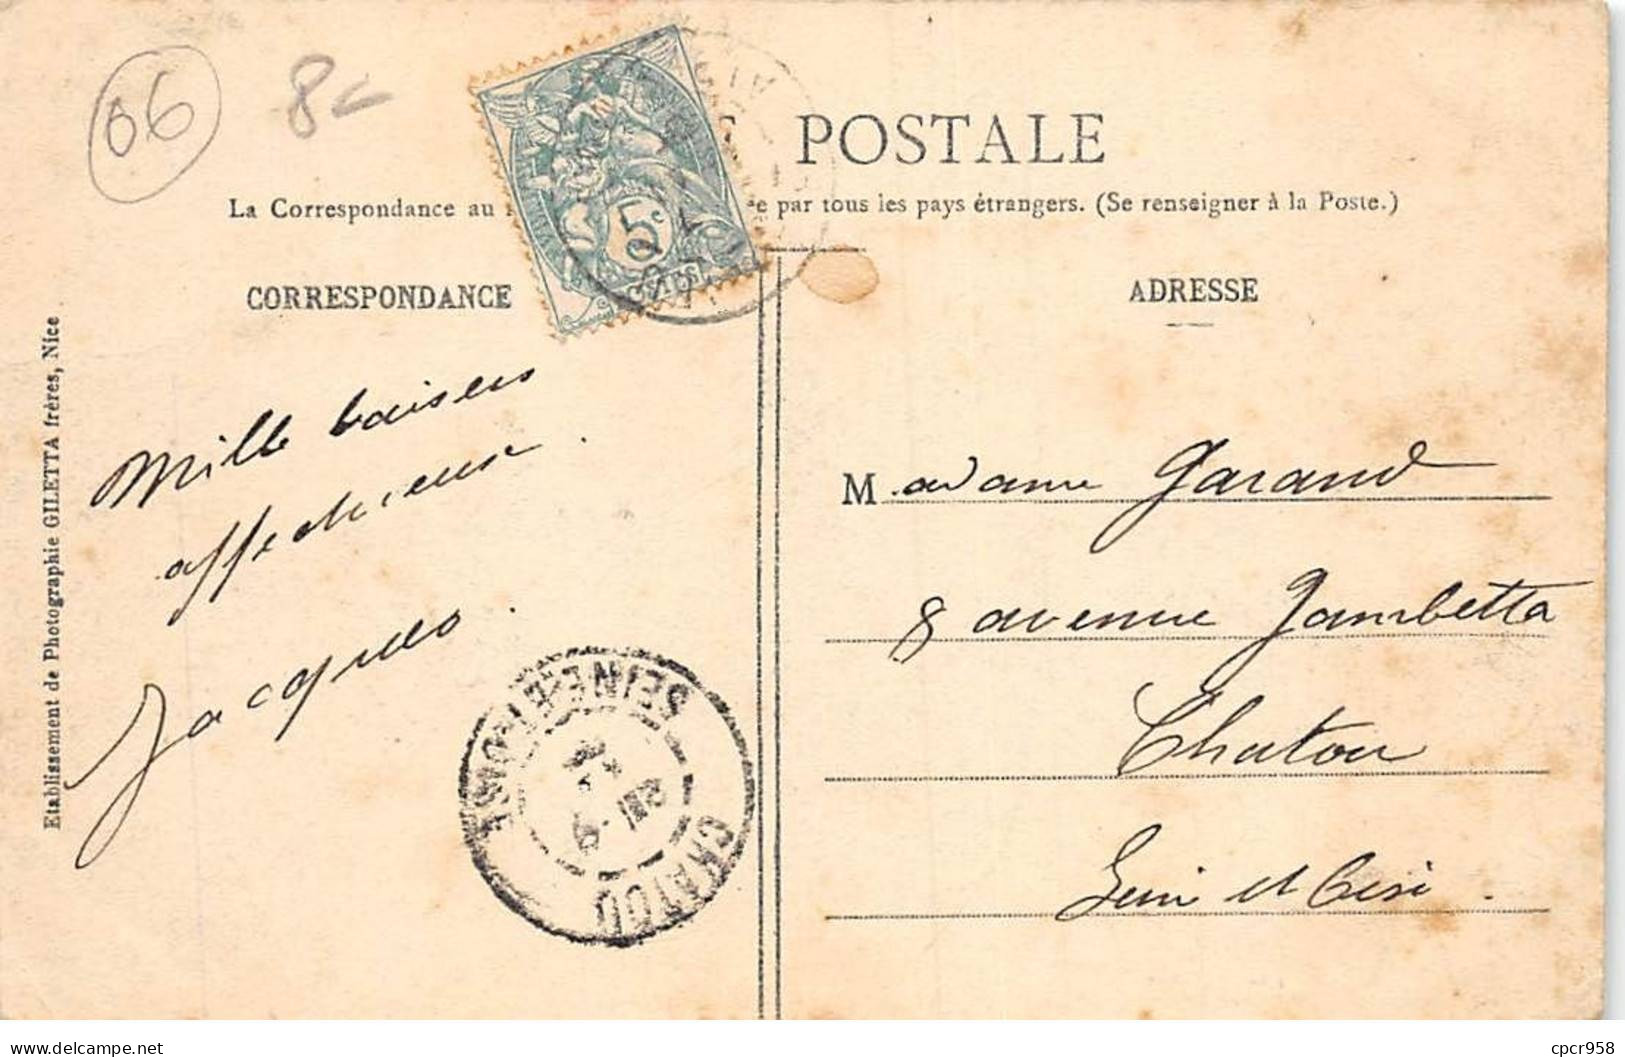 06
8€
POSTALE
La Correspondance au
e par tous les pays étrangers. (Se renseigner à la Poste.)
CORRESPONDANCE
ADRESSE
5c
Etablissement de Photographie GILETTA frères, Nice
Mille baisers
affectueux.
Jacques.
Madame Garand
8 avenue Gambetta
Chatou
Seine et Oise.
CHATOU
SEINE-ET-OISE
delcampe.net
cpcr958